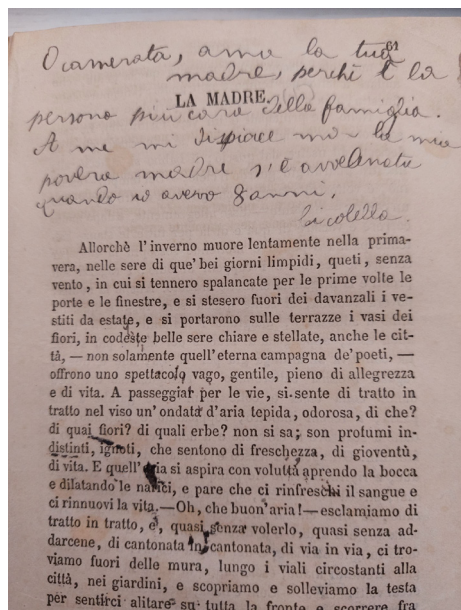 O camerata, ama la tua
91
madre, perchè è la
LA MADRE.
persona più cara della famiglia.
A me mi dispiace ma la mia
povera madre s'è avvelenata
quando io avevo 8 anni,
Allorchè l'inverno muore lentamente nella prima-
vera, nelle sere di que' bei giorni limpidi, queti, senza
vento, in cui si tennero spalancate per le prime volte le
porte e le finestre, e si stesero fuori dei davanzali i ve-
stiti da estate, e si portarono sulle terrazze i vasi dei
fiori, in codeste belle sere chiare e stellate, anche le cit-
tà, — non solamente quell'eterna campagna de' poeti, —
offrono uno spettacolo vago, gentile, pieno di allegrezza
e di vita. A passeggiar per le vie, si sente di tratto in
tratto nel viso un' ondata d'aria tepida, odorosa, di che?
di quai fiori? di quali erbe? non si sa; son profumi in-
distinti, ignoti, che sentono di freschezza, di gioventù,
di vita. E quell'aria si aspira con voluttà aprendo la bocca
e dilatando le narici, e pare che ci rinfreschi il sangue e
ci rinnuovi la vita.—Oh, che buon'aria!—esclamiamo di
tratto in tratto, e, quasi senza volerlo, quasi senza ad-
darcene, di cantonata in cantonata, di via in via, ci tro-
viamo fuori delle mura, lungo i viali circostanti alla
città, nei giardini, e scopriamo e solleviamo la testa
per sentirci alitare su tutta la fronte e scorrere fra